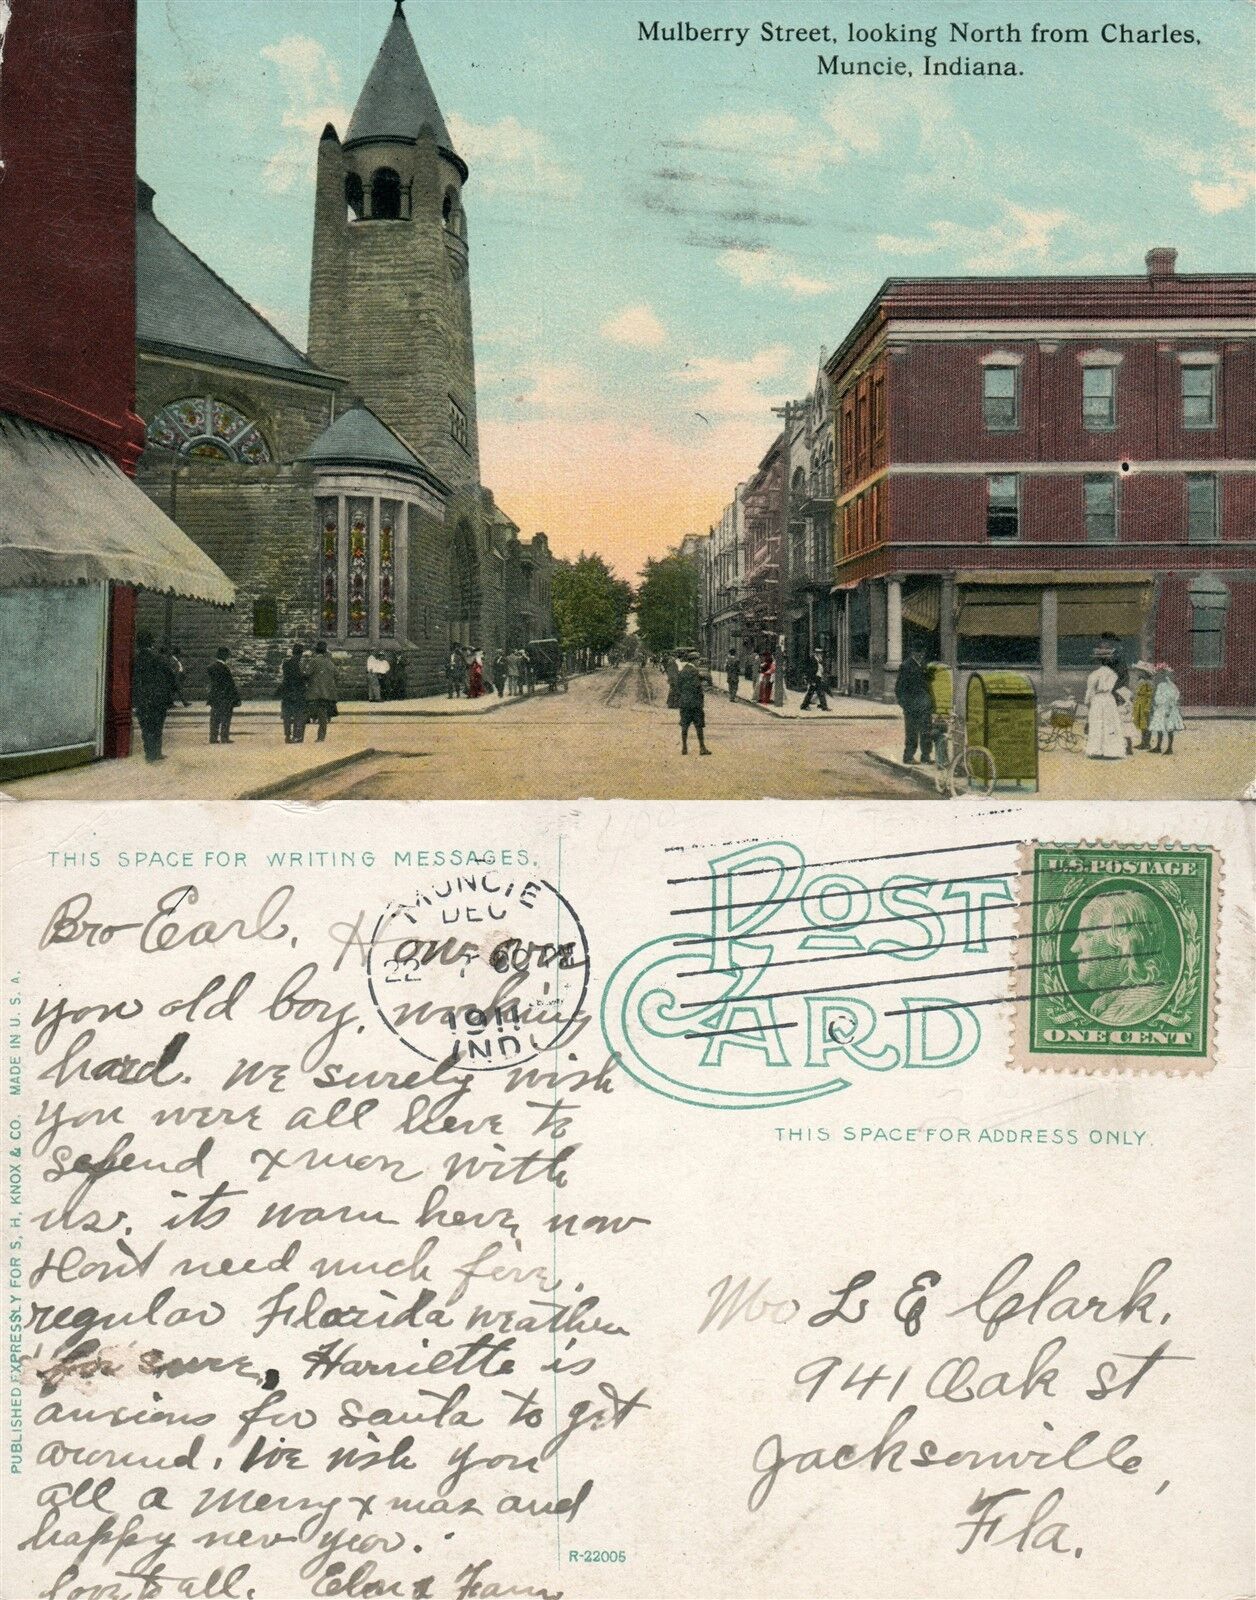 Mulberry Street, looking North from Charles,
Muncie, Indiana.
THIS SPACE FOR WRITING MESSAGES.
POST CARD
U.S. POSTAGE
ONE CENT
MUNCIE
DEC
22
1911
IND.
THIS SPACE FOR ADDRESS ONLY.
PUBLISHED EXPRESSLY FOR S. H. KNOX & CO. MADE IN U. S. A.
Bro Earl. How are
you old boy, working
hard. We surely wish
you were all here to
spend xmas with
us. its warm here, now
dont need much fire.
regular Florida weather
for sure, Harriette is
anxious for santa to get
around. We wish you
all a merry xmas and
happy new year.
Love to all.
L E Clark.
941 Oak st
Jacksonville,
Fla.
R-22005